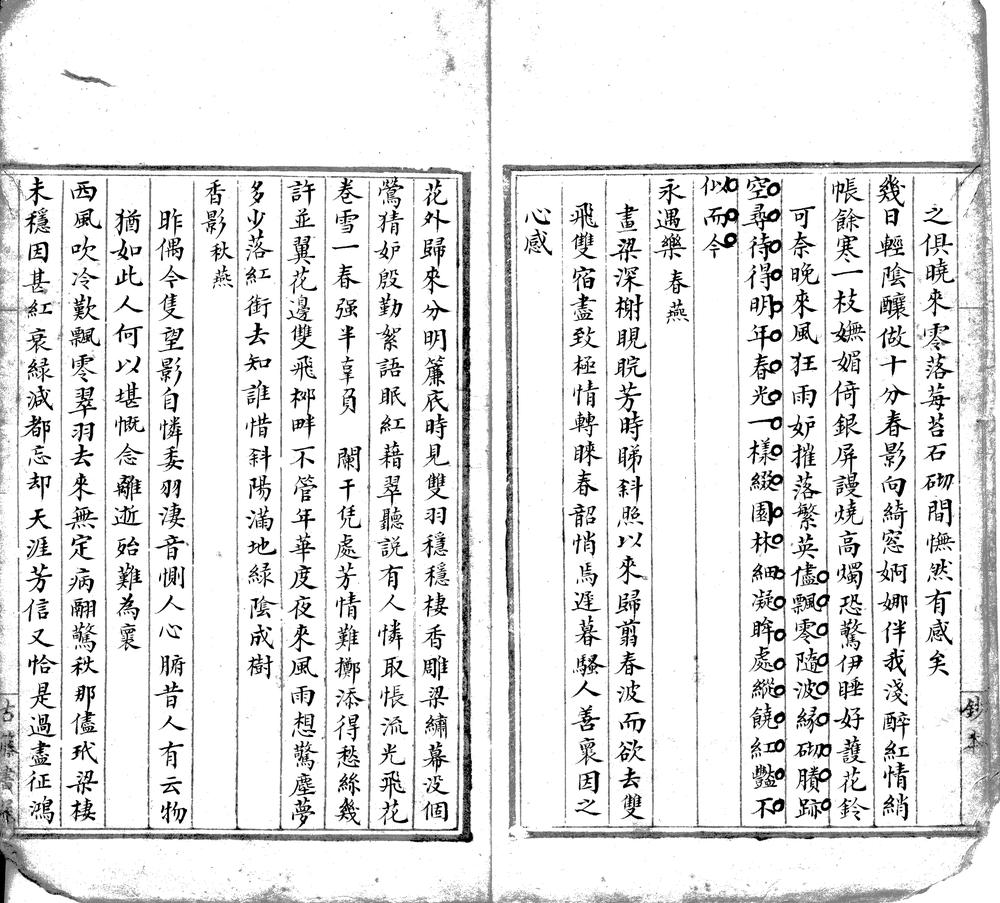 之俱曉來零落莓苔石砌間憮然有感矣
幾日輕陰釀做十分春影向綺窓婀娜伴我淺醉紅情綃
帳餘寒一枝嫵媚倚銀屏謾燒高燭恐驚伊睡好護花鈴
可奈晚來風狂雨妒摧落繁英儘飄零隨波緣砌賸跡
空尋待得明年春光一樣綴園林細凝眸處縱饒紅豔不
似而今
永遇樂 春燕
畫梁深榭睍睆芳時睇斜照以來歸翦春波而欲去雙
飛雙宿盡致極情轉睞春韶悄焉遲暮騷人善褱因之
心感
花外歸來分明簾底時見雙羽穩穩棲香雕梁繡幕没個
鶯猜妒殷勤絮語眠紅藉翠聽説有人憐取悵流光飛花
卷雪一春强半辜負 闌干凭處芳情難擲添得愁絲幾
許並翼花邊雙飛柳畔不管年華度夜來風雨想驚塵夢
多少落紅銜去知誰惜斜陽滿地綠陰成樹
香影 秋燕
昨偶今隻望影自憐委羽淒音惻人心腑昔人有云物
猶如此人何以堪慨念離逝殆難為褱
西風吹冷歎飄零翠羽去來無定病翮驚秋那儘玳梁棲
未穩因甚紅衰綠減都忘却天涯芳信又恰是過盡征鴻
鈔本